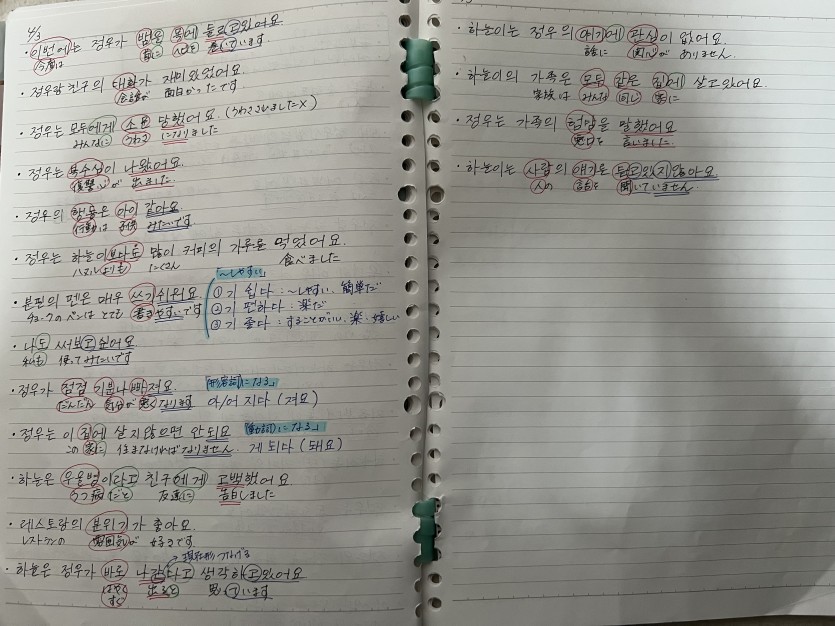 4/3
・이번에는 정우가 뱀을 목에 들르고있어요.
今度は 蛇に 首を 巻いています
・정우랑 친구의 대화가 재미있었어요.
会話が 面白かったです
・정우는 모두에게 소문 말했어요. (うわさしましたX)
みんなに うわさ になりました
・정우는 복수심이 나왔어요.
復讐心が 出ました
・정우의 행동은 아이 같아요.
行動は 子供 みたいです
・정우는 하늘이보다도 많이 커피의 가루를 먹었어요.
ハヌルよりも たくさん 食べました
「〜しやすい」
・분필의 펜은 매우 쓰기쉬워요.
チョークのペンは とても 書きやすいです
①기 쉽다 : 〜しやすい、簡単だ
②기 편하다 : 楽だ
③기 좋다 : することがいい、楽、嬉しい
・나도 써보고싶어요.
私も 使ってみたいです
・정우가 점점 기분나빠져요.
だんだん 気分が悪くなります
「形容詞になる」
아/어 지다 (져요)
・정우는 이 집에 살지않으면 안되요
この 家に 住まなければなりません
「動詞になる」
게 되다 (돼요)
・하늘은 우울병이라고 친구에게 고백했어요
うつ病だと 友達に 告白しました
・레스토랑의 분위기가 좋아요.
レストランの 雰囲気が 好きです
・하늘은 정우가 바로 나간다고 생각하고있어요
すぐ 出ると 思っています
・하늘이는 정우의 얘기에 관심이 없어요.
話に 関心が ありません.
・하늘이의 가족은 모두 같은 집에 살고있어요.
家族は みんな 同じ 家に
・정우는 가족의 험담을 말했어요
悪口を 言いました
・하늘이는 사람의 얘기를 듣고있지않아요.
人の 話を 聞いていません